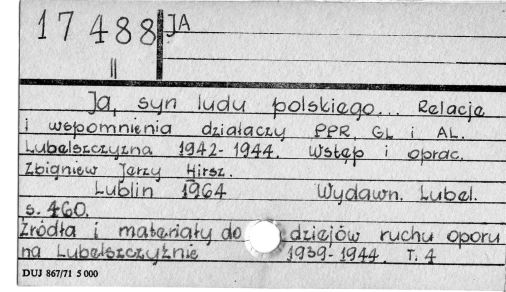 17 488
JA
"
Ja, syn ludu polskiego... Relacje
i wspomnienia działaczy PPR, GL i AL.
Lubelszczyzna 1942-1944. Wstęp i oprac.
Zbigniew Jerzy Hirsz.
Lublin 1964 Wydawn. Lubel.
s. 460.
Źródła i materiały do dziejów ruchu oporu
na Lubelszczyźnie 1939-1944. T. 4
DUJ 867/71 5 000